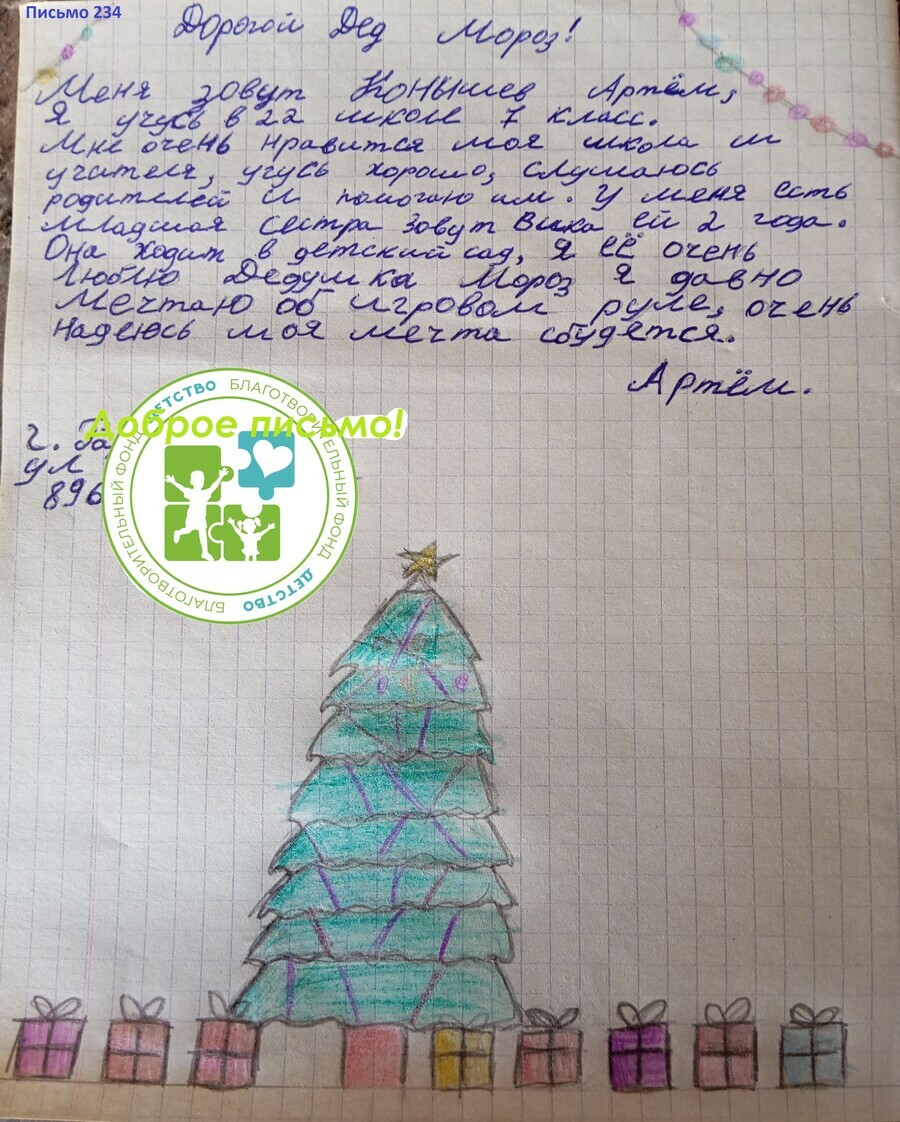 Письмо 234
Дорогой Дед Мороз!
Меня зовут Конышев Артём,
Я учусь в 22 школе 7 класс.
Мне очень нравится моя школа и
учителя, учусь хорошо, слушаюсь
родителей и помогаю им. У меня есть
младшая сестра зовут Вика ей 2 года.
Она ходит в детский сад, я её очень
люблю Дедушка Мороз я давно
мечтаю об игровом руле, очень
надеюсь моя мечта сбудется.
Артём.
Доброе письмо!
г.
ул
896
БЛАГОТВОРИТЕЛЬНЫЙ ФОНД ДЕТСТВО
БЛАГОТВОРИТЕЛЬНЫЙ ФОНД ДЕТСТВО